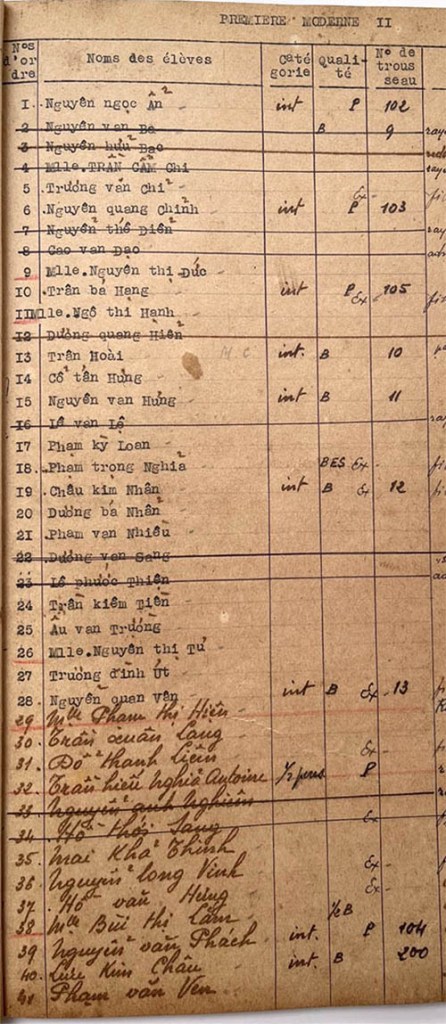 PREMIERE MODERNE II
Nos d'or dre Noms des élèves Caté gorie Quali- té No de trous seau
I. Nguyên ngọc Ẩn int P 102
2 Nguyên van Ba B 9
3 Nguyên hữu Bao
4 Mlle.TRẦN CẨM Chi
5 .Trương văn Chỉ Ex-
6 .Nguyên quang Chỉnh int P 103
7 Nguyên thế Diễn
8 Cao van Dao
9 Mlle.Nguyên thị Đức
IO .Trân bá Hạng int P Ex 105
II Mlle.Ngô thi Hạnh
I2 Dương quang Hiển
I3 Trân Hoài int. B 10
I4 Cổ tấn Hưng
I5 Nguyên van Hưng int B 11
I6 Lê van Lệ
I7 Phạm kỳ Loan
I8. Phạm trọng Nghia BES Ex-
I9 .Châu kim Nhân int B Ex 12
20 Dương bá Nhẫn
2I .Phạm van Nhiêu
22 Dương van Sang
23 Lê phước Thiên
24 Trân kiêm Tiên
25 Âu van Trương
26 Mlle.Nguyên thị Tư
27 Trương đình Út
28. Nguyên quan Vân int B Ex- 13
29 Mlle Pham thị Hiên
30. Trân xuân Lang
31. Đỗ thanh Liêm Ex-
32. Trân hiêu Nghĩa Antoine 1/2 pens P
33 Nguyên anh Nghiêm
34. Hồ thới Sang Ex
35. Mai Khả Thinh
36 Nguyên long Vinh Ex-
37. Hồ văn Hưng Ex-
38 Mlle Bùi thị Lâm 1/2 B
39 Nguyên văn Phách int. P 104
40. Lưu Kim Châu int. B 200
41 Phạm văn Ven